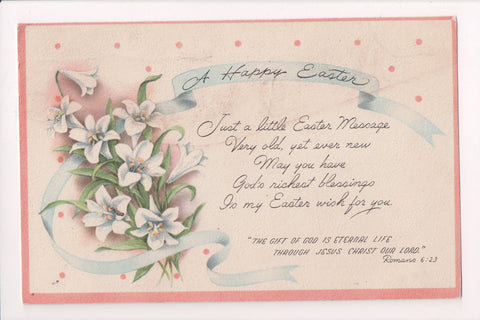 A Happy Easter
Just a little Easter Message
Very old, yet ever new
May you have
God's richest blessings
Is my Easter wish for you.
"THE GIFT OF GOD IS ETERNAL LIFE
THROUGH JESUS CHRIST OUR LORD."
Romans 6:23